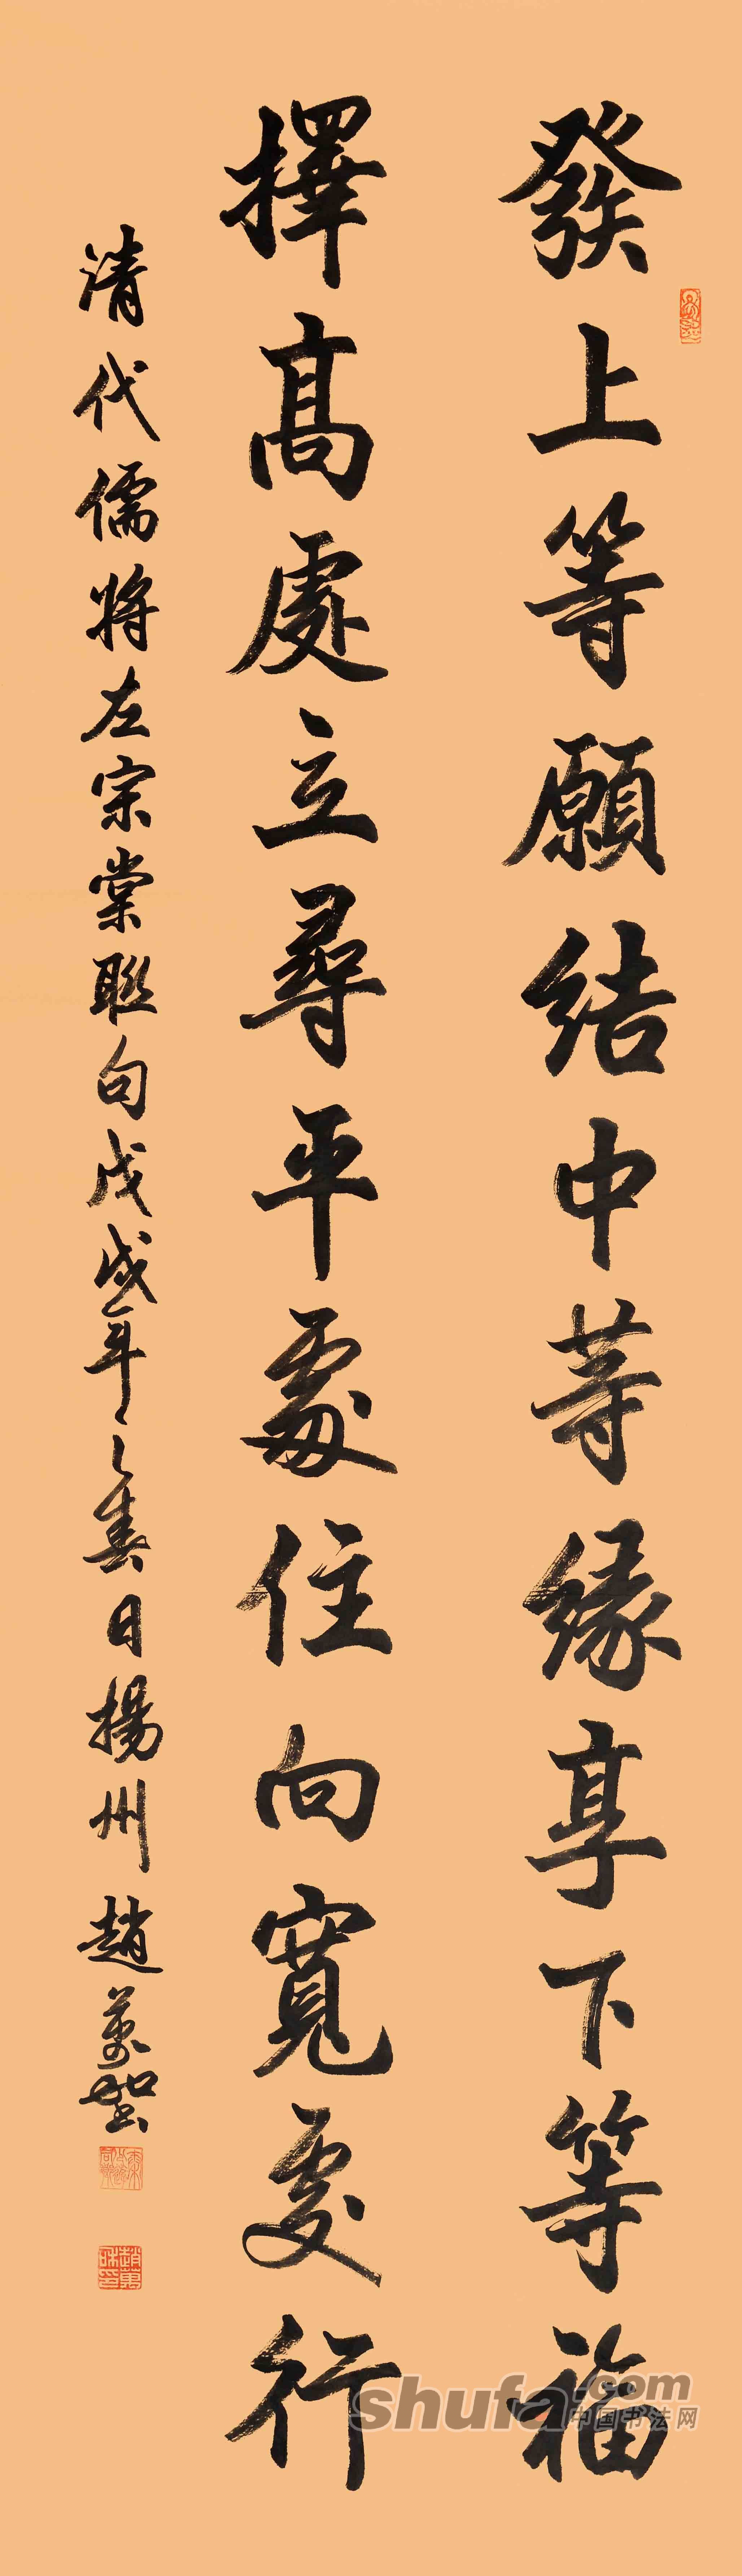 發上等願結中等緣享下等福
擇高處立尋平處住向寬處行
清代儒將左宗棠聯句戊戌年之春日揚州趙萬
shufa.com
中国书法网